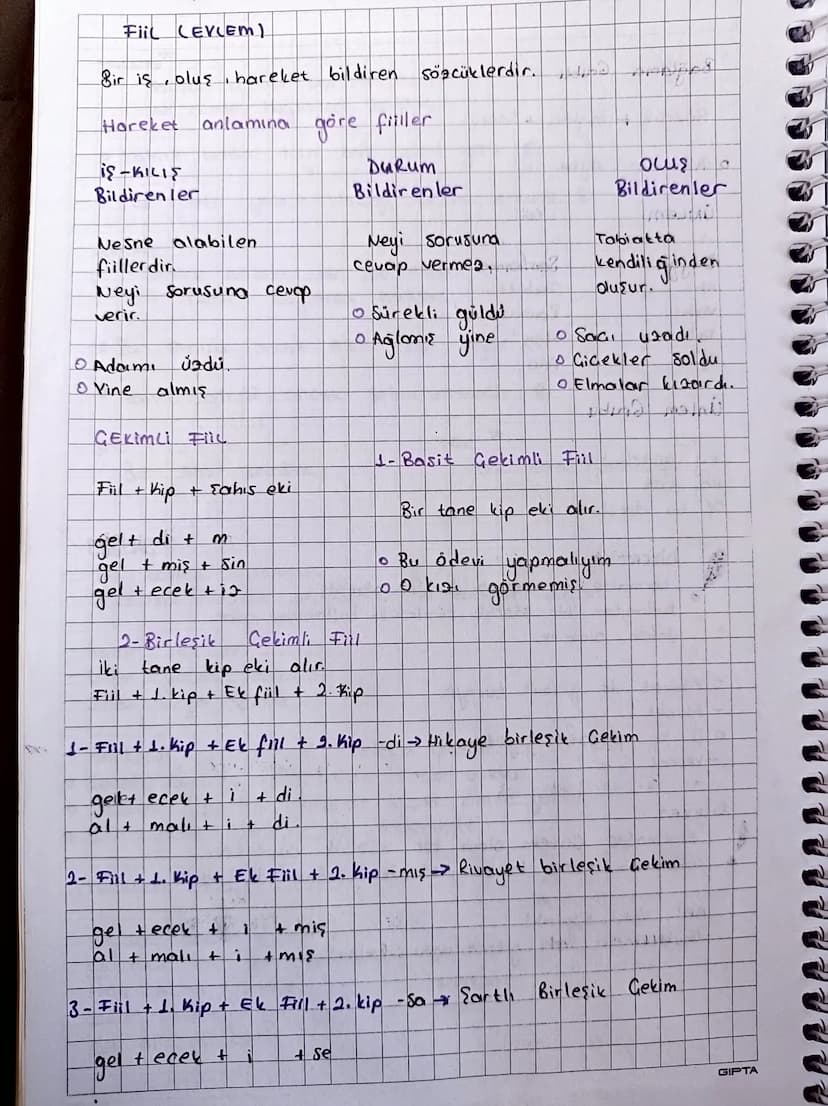 FiiL (EYLEM)
Bir iş, oluş, hareket bildiren sözcüklerdir.
Hareket anlamına göre fiiller
iş-KILIŞ
Bildirenler
Nesne alabilen
fiillerdir.
Neyi sorusuna cevap
verir.
o Adamı üzdü.
o Yine almış
DURUM
Bildirenler
Neyi sorusuna
cevap vermez.
o Sürekli güldü
o Ağlamış yine
OLUŞ
Bildirenler
Tabiatta
kendiliğinden
oluşur.
o Saçı uzadı.
o Çiçekler soldu
o Elmalar kızardı.
ÇEKİMLİ FİİL
Fiil + Kip + Şahıs eki
gel + di + m
gel + miş + sin
gel + ecek + iz
1- Basit Çekimli Fiil
Bir tane kip eki alır.
o Bu ödevi yapmalıyım
o O kızı görmemiş.
2- Birleşik Çekimli Fiil
iki tane kip eki alır.
Fiil + 1. kip + Ek fiil + 2. Kip
1- Fiil + 1. Kip + Ek fiil + 2. Kip -di → Hikaye birleşik Çekim
gel + ecek + i + di.
al + malı + i + di.
2- Fiil + 1. Kip + Ek Fiil + 2. Kip -mış → Rivayet birleşik Çekim
gel + ecek + i + miş
al + malı + i + mış
3- Fiil + 1. Kip + Ek Fiil + 2. kip -sa → Şartlı Birleşik Çekim
gel + ecek + i + se
GIPTA